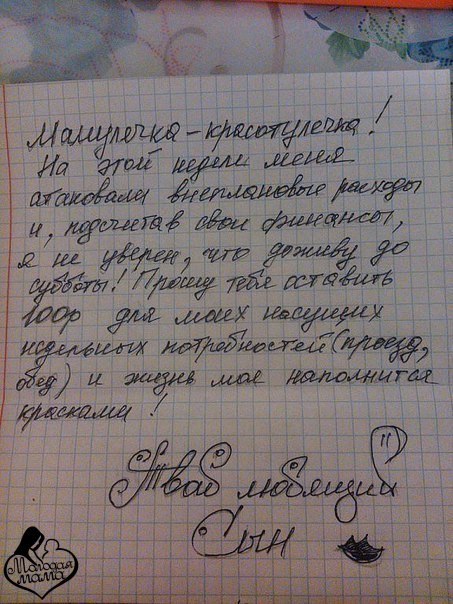 Мамулечка-красотулечка!
На этой недели меня
атаковали внеплановые расходы
и, подсчитав свои финансы,
я не уверен, что доживу до
субботы! Прошу тебя оставить
100р для моих насущих
недельных потребностей (проезд,
обед) и жизнь моя наполнится
красками!
Твой любящий
Сын
Молодая
мама